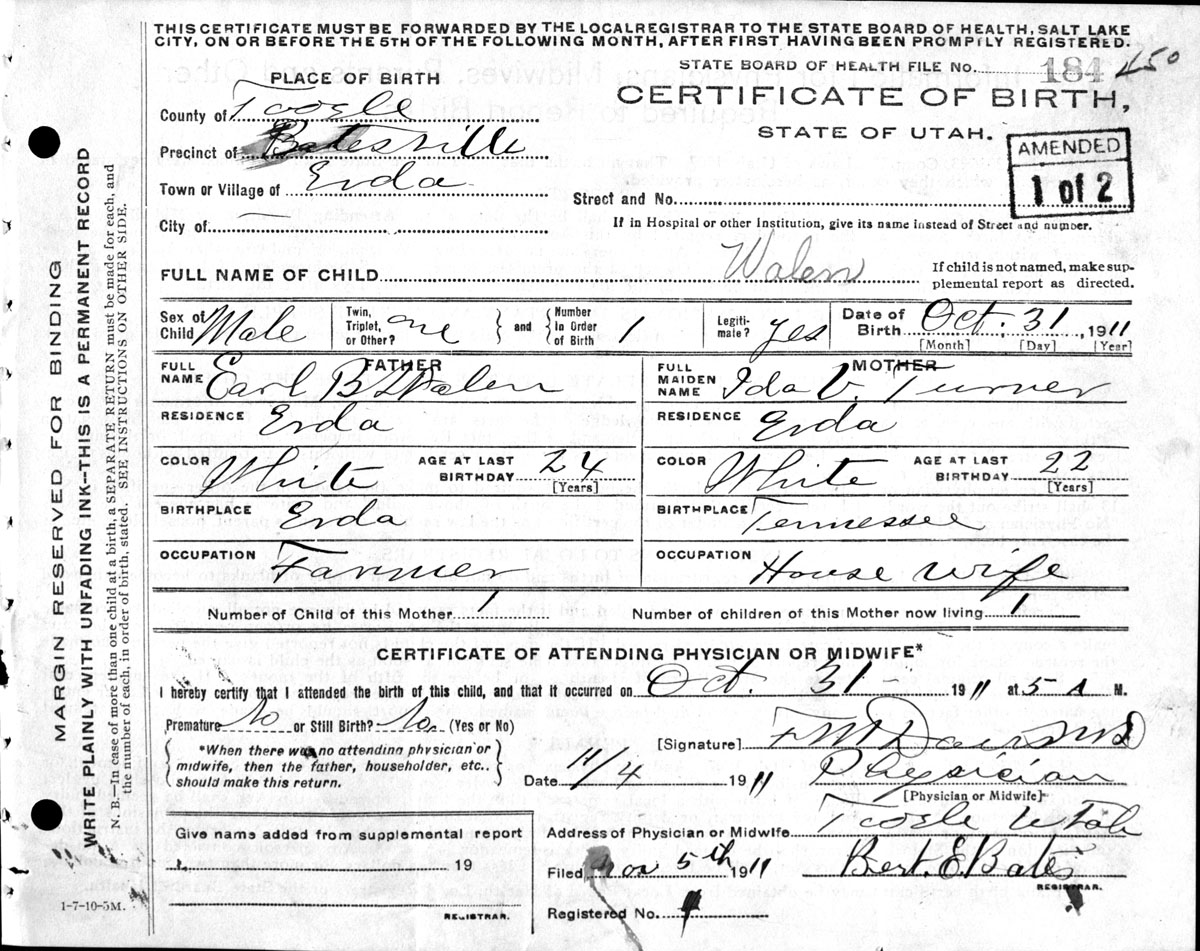 THIS CERTIFICATE MUST BE FORWARDED BY THE LOCAL REGISTRAR TO THE STATE BOARD OF HEALTH, SALT LAKE
CITY, ON OR BEFORE THE 5TH OF THE FOLLOWING MONTH, AFTER FIRST HAVING BEEN PROMPTLY REGISTERED.
STATE BOARD OF HEALTH FILE NO. 184 450
PLACE OF BIRTH
CERTIFICATE OF BIRTH,
STATE OF UTAH.
County of Tooele
Precinct of Batesville
Town or Village of Erda
City of
AMENDED
1 of 2
Street and No.
If in Hospital or other Institution, give its name instead of Street and number.
FULL NAME OF CHILD Walen
If child is not named, make sup-
plemental report as directed.
Sex of Child Male
Twin, Triplet, or Other? one } and { Number In Order of Birth 1
Legiti-mate? yes
Date of Birth Oct. 31 1911
[Month] [Day] [Year]
FATHER
FULL NAME Earl B Walen
RESIDENCE Erda
COLOR White AGE AT LAST BIRTHDAY 24 [Years]
BIRTHPLACE Erda
OCCUPATION Farmer
MOTHER
FULL MAIDEN NAME Ida V. Turner
RESIDENCE Erda
COLOR White AGE AT LAST BIRTHDAY 22 [Years]
BIRTHPLACE Tennessee
OCCUPATION House wife
Number of Child of this Mother 1
Number of children of this Mother now living 1
CERTIFICATE OF ATTENDING PHYSICIAN OR MIDWIFE*
I hereby certify that I attended the birth of this child, and that it occurred on Oct. 31 1911 at 5 A M.
Premature No or Still Birth? No (Yes or No)
*When there was no attending physician or
midwife, then the father, householder, etc..
should make this return.
[Signature] F M Davis MD
Date 11/4 1911 Physician
[Physician or Midwife]
Address of Physician or Midwife Tooele Utah
Give name added from supplemental report
19
REGISTRAR.
Filed Nov 5th 1911 Bert. E. Bates
REGISTRAR.
Registered No. 1
1-7-10-5M.
MARGIN RESERVED FOR BINDING
WRITE PLAINLY WITH UNFADING INK--THIS IS A PERMANENT RECORD
N. B.—In case of more than one child at a birth, a SEPARATE RETURN must be made for each, and
the number of each, in order of birth, stated. SEE INSTRUCTIONS ON OTHER SIDE.